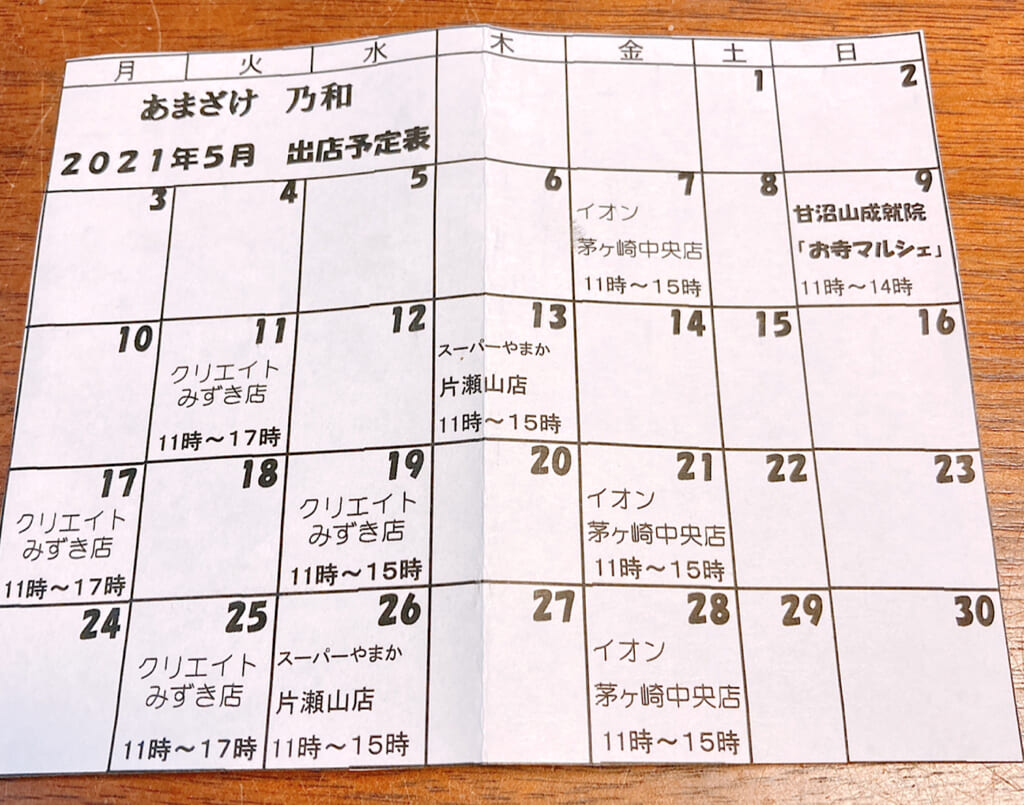 月 火 水 木 金 土 日
あまざけ 乃和
2021年5月 出店予定表
1 2
3 4 5 6 7 8 9
イオン
茅ヶ崎中央店
11時～15時
甘沼山成就院
「お寺マルシェ」
11時～14時
10 11 12 13 14 15 16
クリエイト
みずき店
11時～17時
スーパーやまか
片瀬山店
11時～15時
17 18 19 20 21 22 23
クリエイト
みずき店
11時～17時
クリエイト
みずき店
11時～15時
イオン
茅ヶ崎中央店
11時～15時
24 25 26 27 28 29 30
クリエイト
みずき店
11時～17時
スーパーやまか
片瀬山店
11時～15時
イオン
茅ヶ崎中央店
11時～15時